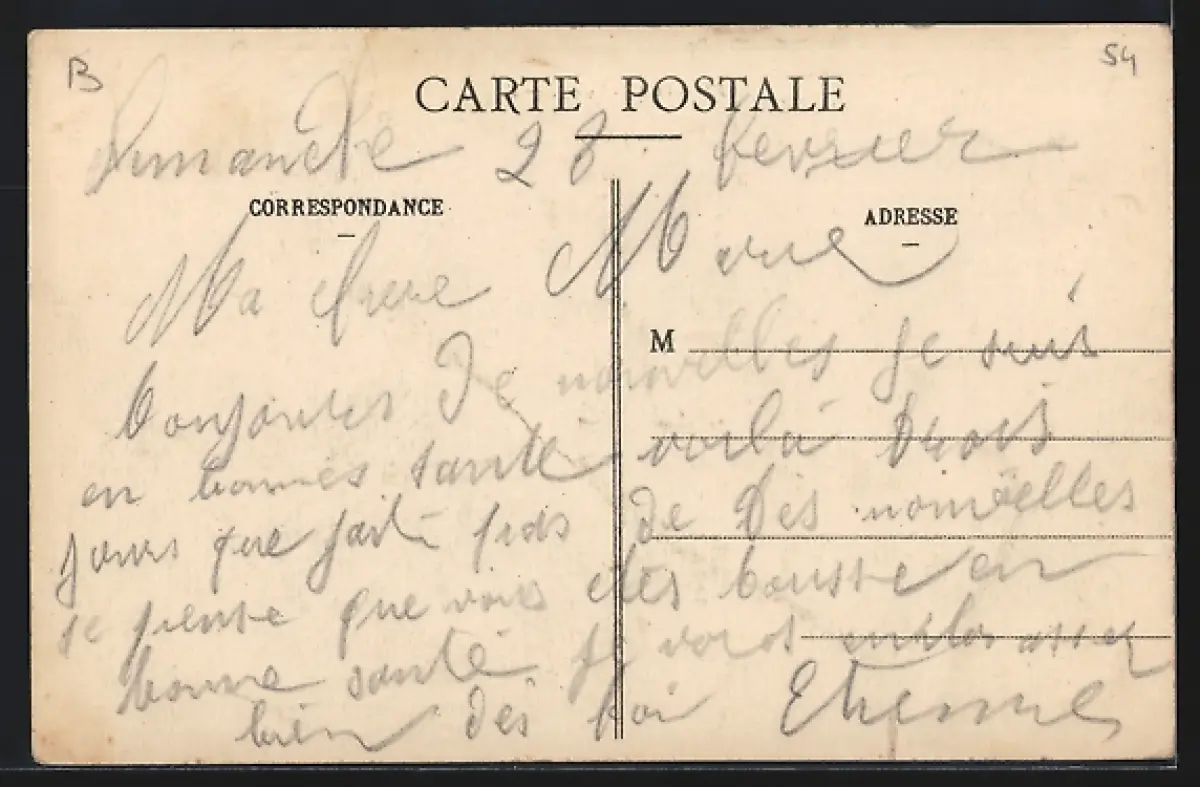 B
54
CARTE POSTALE
Dimanche 28 fevrier
CORRESPONDANCE
ADRESSE
Ma Marie
M
toujours de nouvelles je suis
en bonnes santé voilà trois
jours que pas de tes nouvelles
je pense que vous êtes tousse en
bonne santé je vous embrasser
bien des foi Etienne